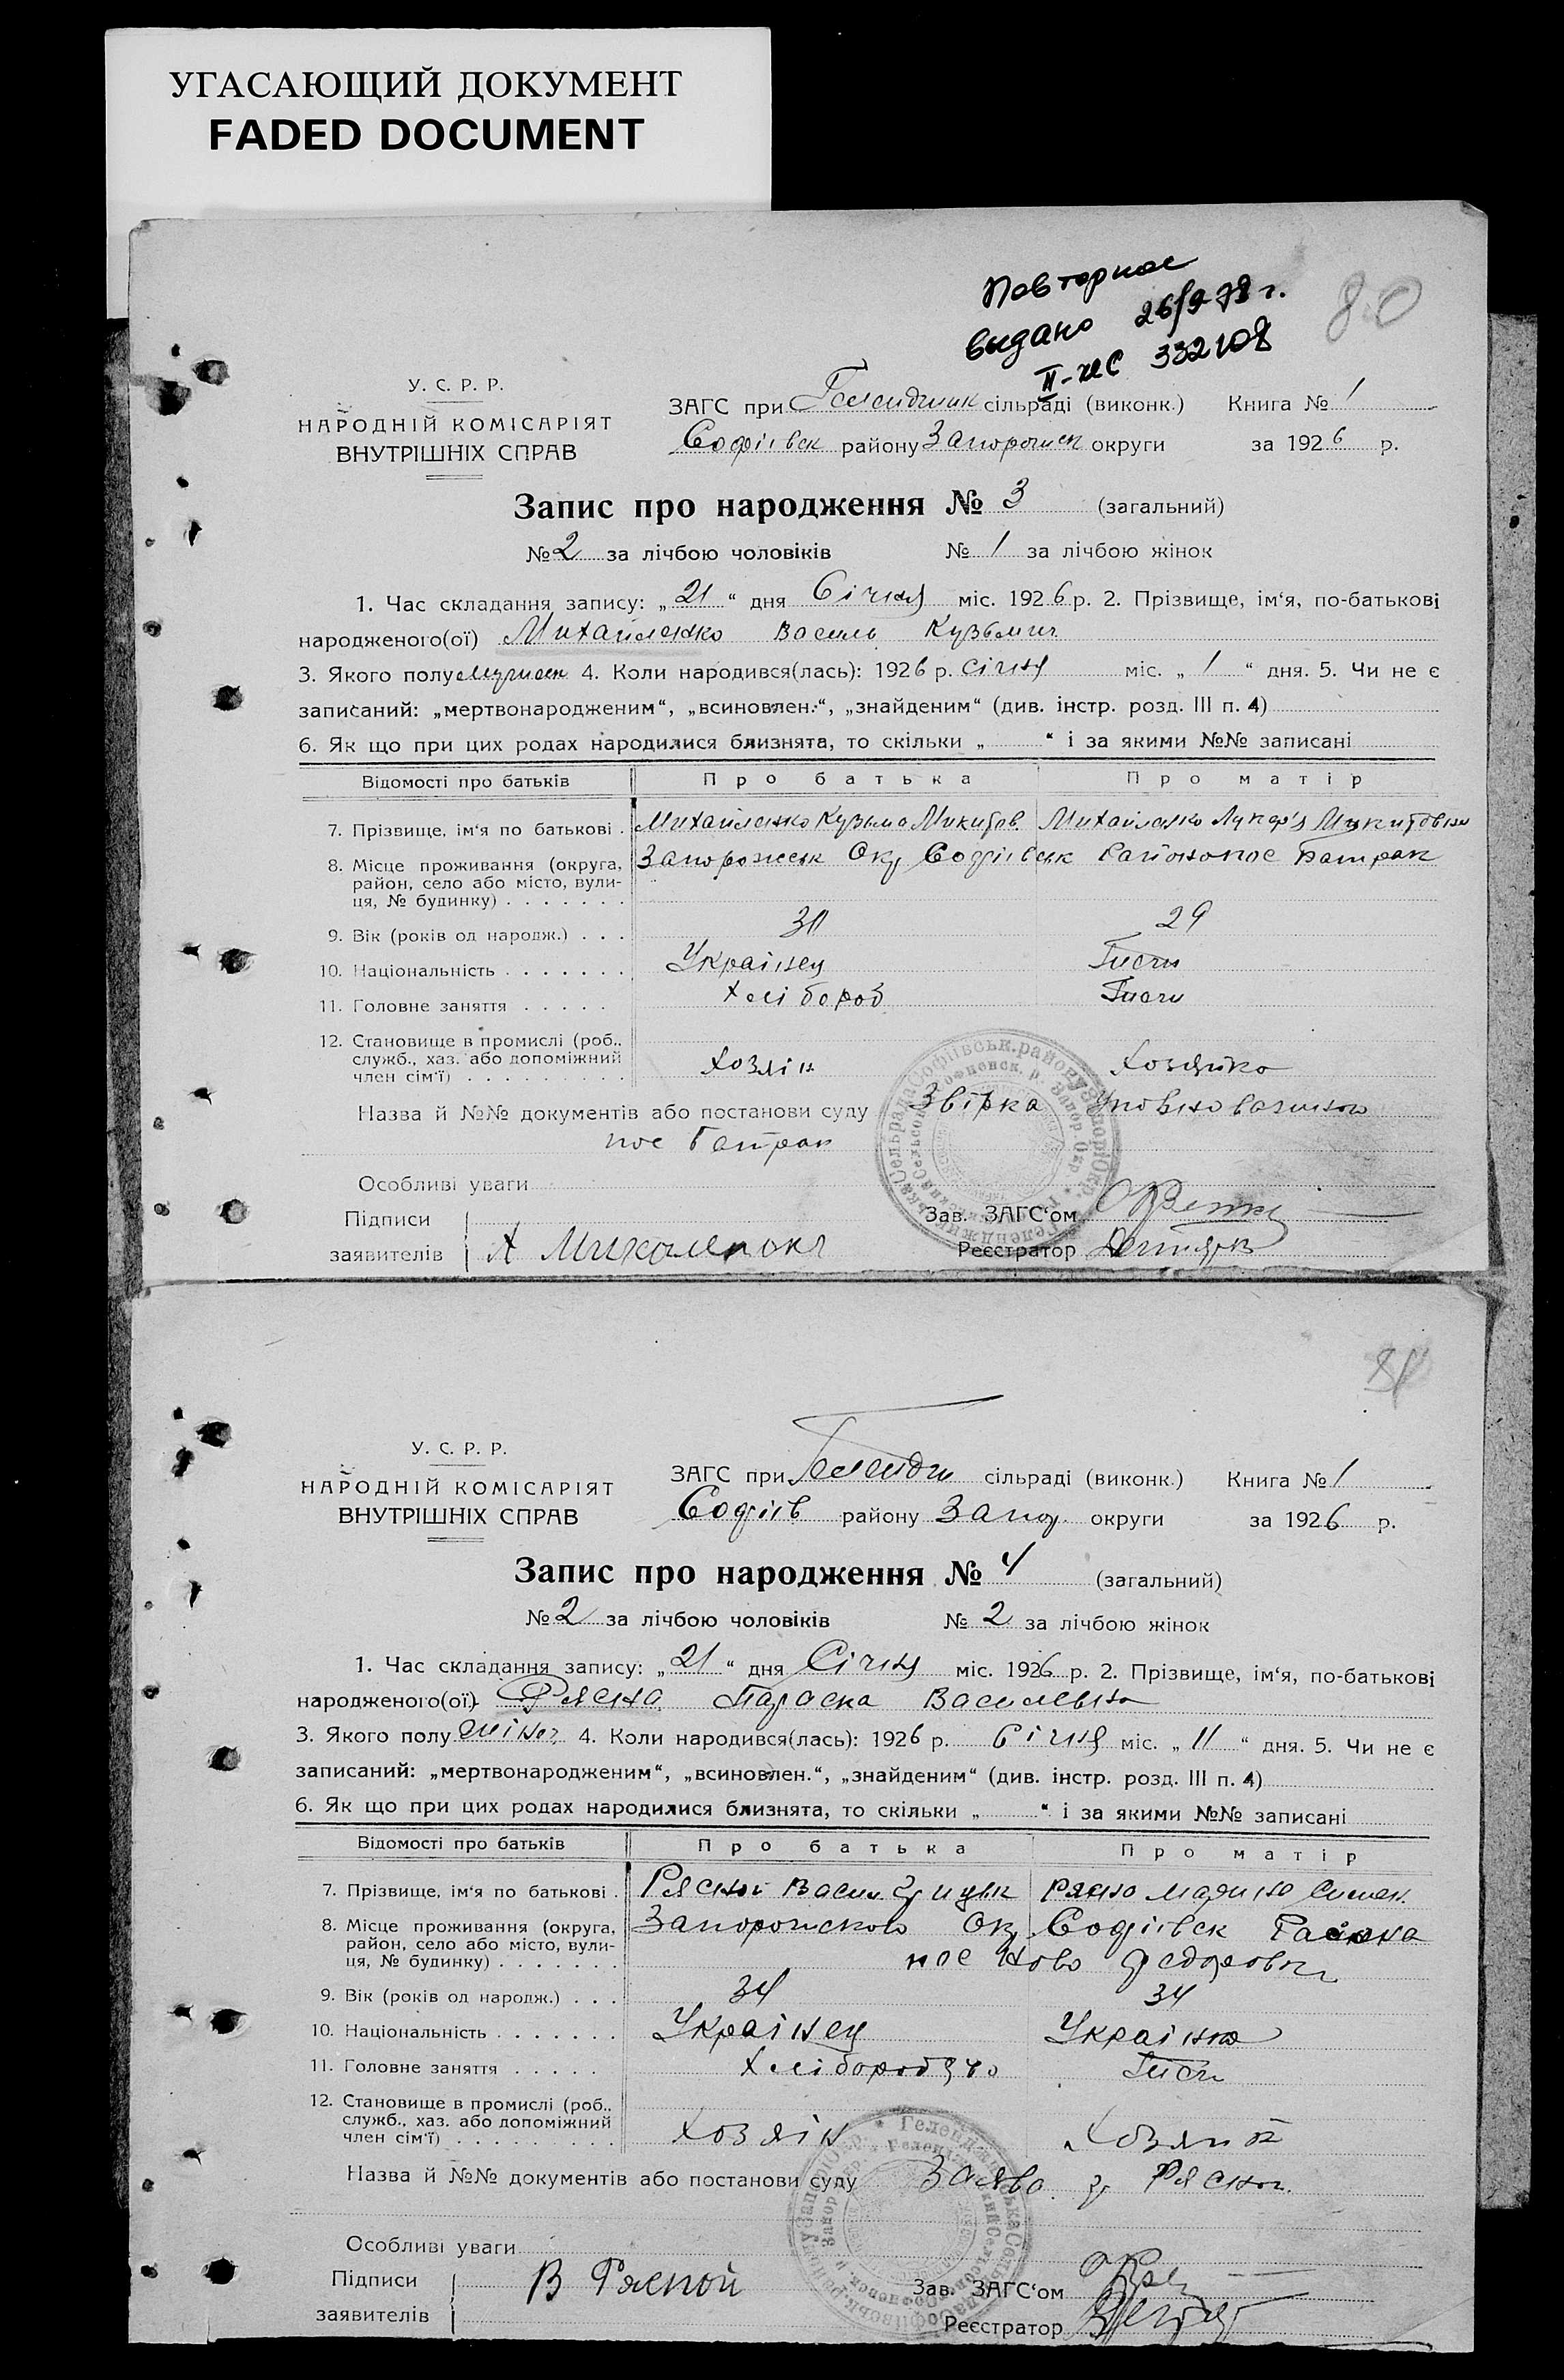 УГАСАЮЩИЙ ДОКУМЕНТ
FADED DOCUMENT
Повторное
выдано 26/9-78 г.
II-ЖС 332108
80
У. С. Р. Р.
НАРОДНІЙ КОМІСАРІЯТ
ВНУТРІШНІХ СПРАВ
ЗАГС при Геленджик сільраді (виконк.) Книга № 1
Софіївск району Запорожск округи за 1926 р.
Запис про народження № 3 (загальний)
№ 2 за лічбою чоловіків № 1 за лічбою жінок
1. Час складання запису: „21“ дня Січня міс. 1926 р. 2. Прізвище, ім‘я, по-батькові
народженого(ої) Михайленко Василь Кузьмич
3. Якого полу мужеск 4. Коли народився(лась): 1926 р. січня міс. „1“ дня. 5. Чи не є
записаний: „мертвонародженим“, „всиновлен.“, „знайденим“ (див. інстр. розд. III п. 4)
6. Як що при цих родах народилися близнята, то скільки „ “ і за якими №№ записані
Відомості про батьків Про батька Про матір
7. Прізвище, ім‘я по батькові Михайленко Кузьма Микитов. Михайленко Лукер‘я Микитовна
8. Місце проживання (округа, Запорожськ Окр Софіївськ Района пос Батрак
район, село або місто, вули-
ця, № будинку)
9. Вік (років од народж.) 30 29
10. Національність Українец
11. Головне заняття Хлібороб
12. Становище в промислі (роб.,
служб., хаз. або допоміжний Хозяін Хозяйка
член сім‘ї)
Назва й №№ документів або постанови суду Звірка Уповноваженого
пос Батрак
Особливі уваги
Підписи Зав. ЗАГС‘ом
заявителів Реєстратор
81
У. С. Р. Р.
НАРОДНІЙ КОМІСАРІЯТ
ВНУТРІШНІХ СПРАВ
ЗАГС при Гелендж сільраді (виконк.) Книга № 1
Софіїв району Запор. округи за 1926 р.
Запис про народження № 4 (загальний)
№ 2 за лічбою чоловіків № 2 за лічбою жінок
1. Час складання запису: „21“ дня Січня міс. 1926 р. 2. Прізвище, ім‘я, по-батькові
народженого(ої) Рясна Параска Васильевна
3. Якого полу жіноч. 4. Коли народився(лась): 1926 р. Січня міс. „11“ дня. 5. Чи не є
записаний: „мертвонародженим“, „всиновлен.“, „знайденим“ (див. інстр. розд. III п. 4)
6. Як що при цих родах народилися близнята, то скільки „ “ і за якими №№ записані
Відомості про батьків Про батька Про матір
7. Прізвище, ім‘я по батькові Рясной Васил Грицьк Рясна Марина
8. Місце проживання (округа, Запорожского Окр Софіївск Района
район, село або місто, вули- пос Ново Федоровка
ця, № будинку)
9. Вік (років од народж.) 34 34
10. Національність Українец Українка
11. Головне заняття
12. Становище в промислі (роб.,
служб., хаз. або допоміжний Хозяін
член сім‘ї)
Назва й №№ документів або постанови суду Заява гр Рясног.
Особливі уваги
Підписи В Рясной Зав. ЗАГС‘ом
заявителів Реєстратор